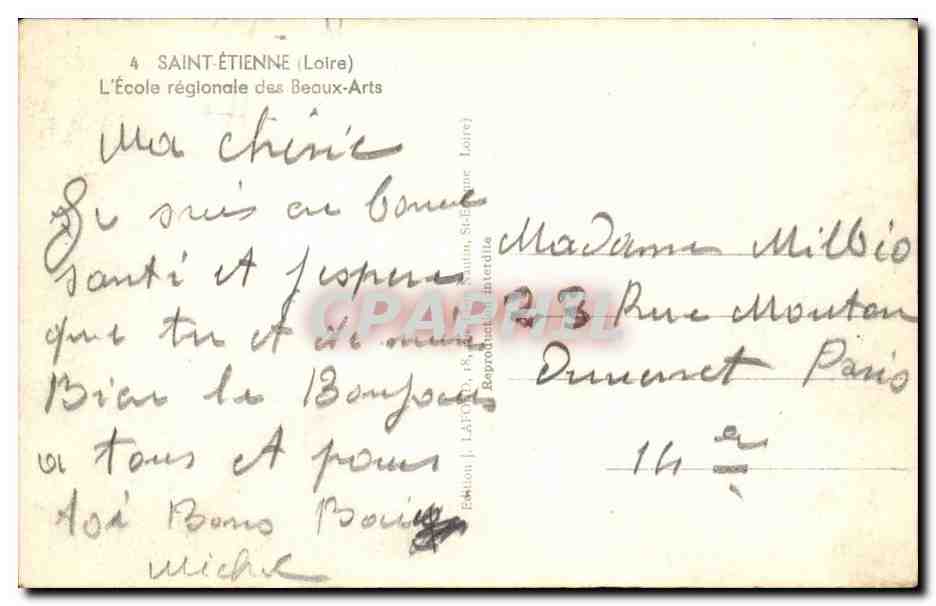 4 SAINT-ÉTIENNE (Loire)
L'École régionale des Beaux-Arts
Ma chérie
Je suis en bonne
santé et j'espere
que tu et de même
Bien le Bonjour
a tous et pour
toi Bons Bai
Michel
Edition J. LAFOND, 18, Nautin, St-Etienne (Loire)
Reproduction interdite
Madame Milbio
23 Rue Mouton
Duvernet Paris
14 e
CPARPHIL